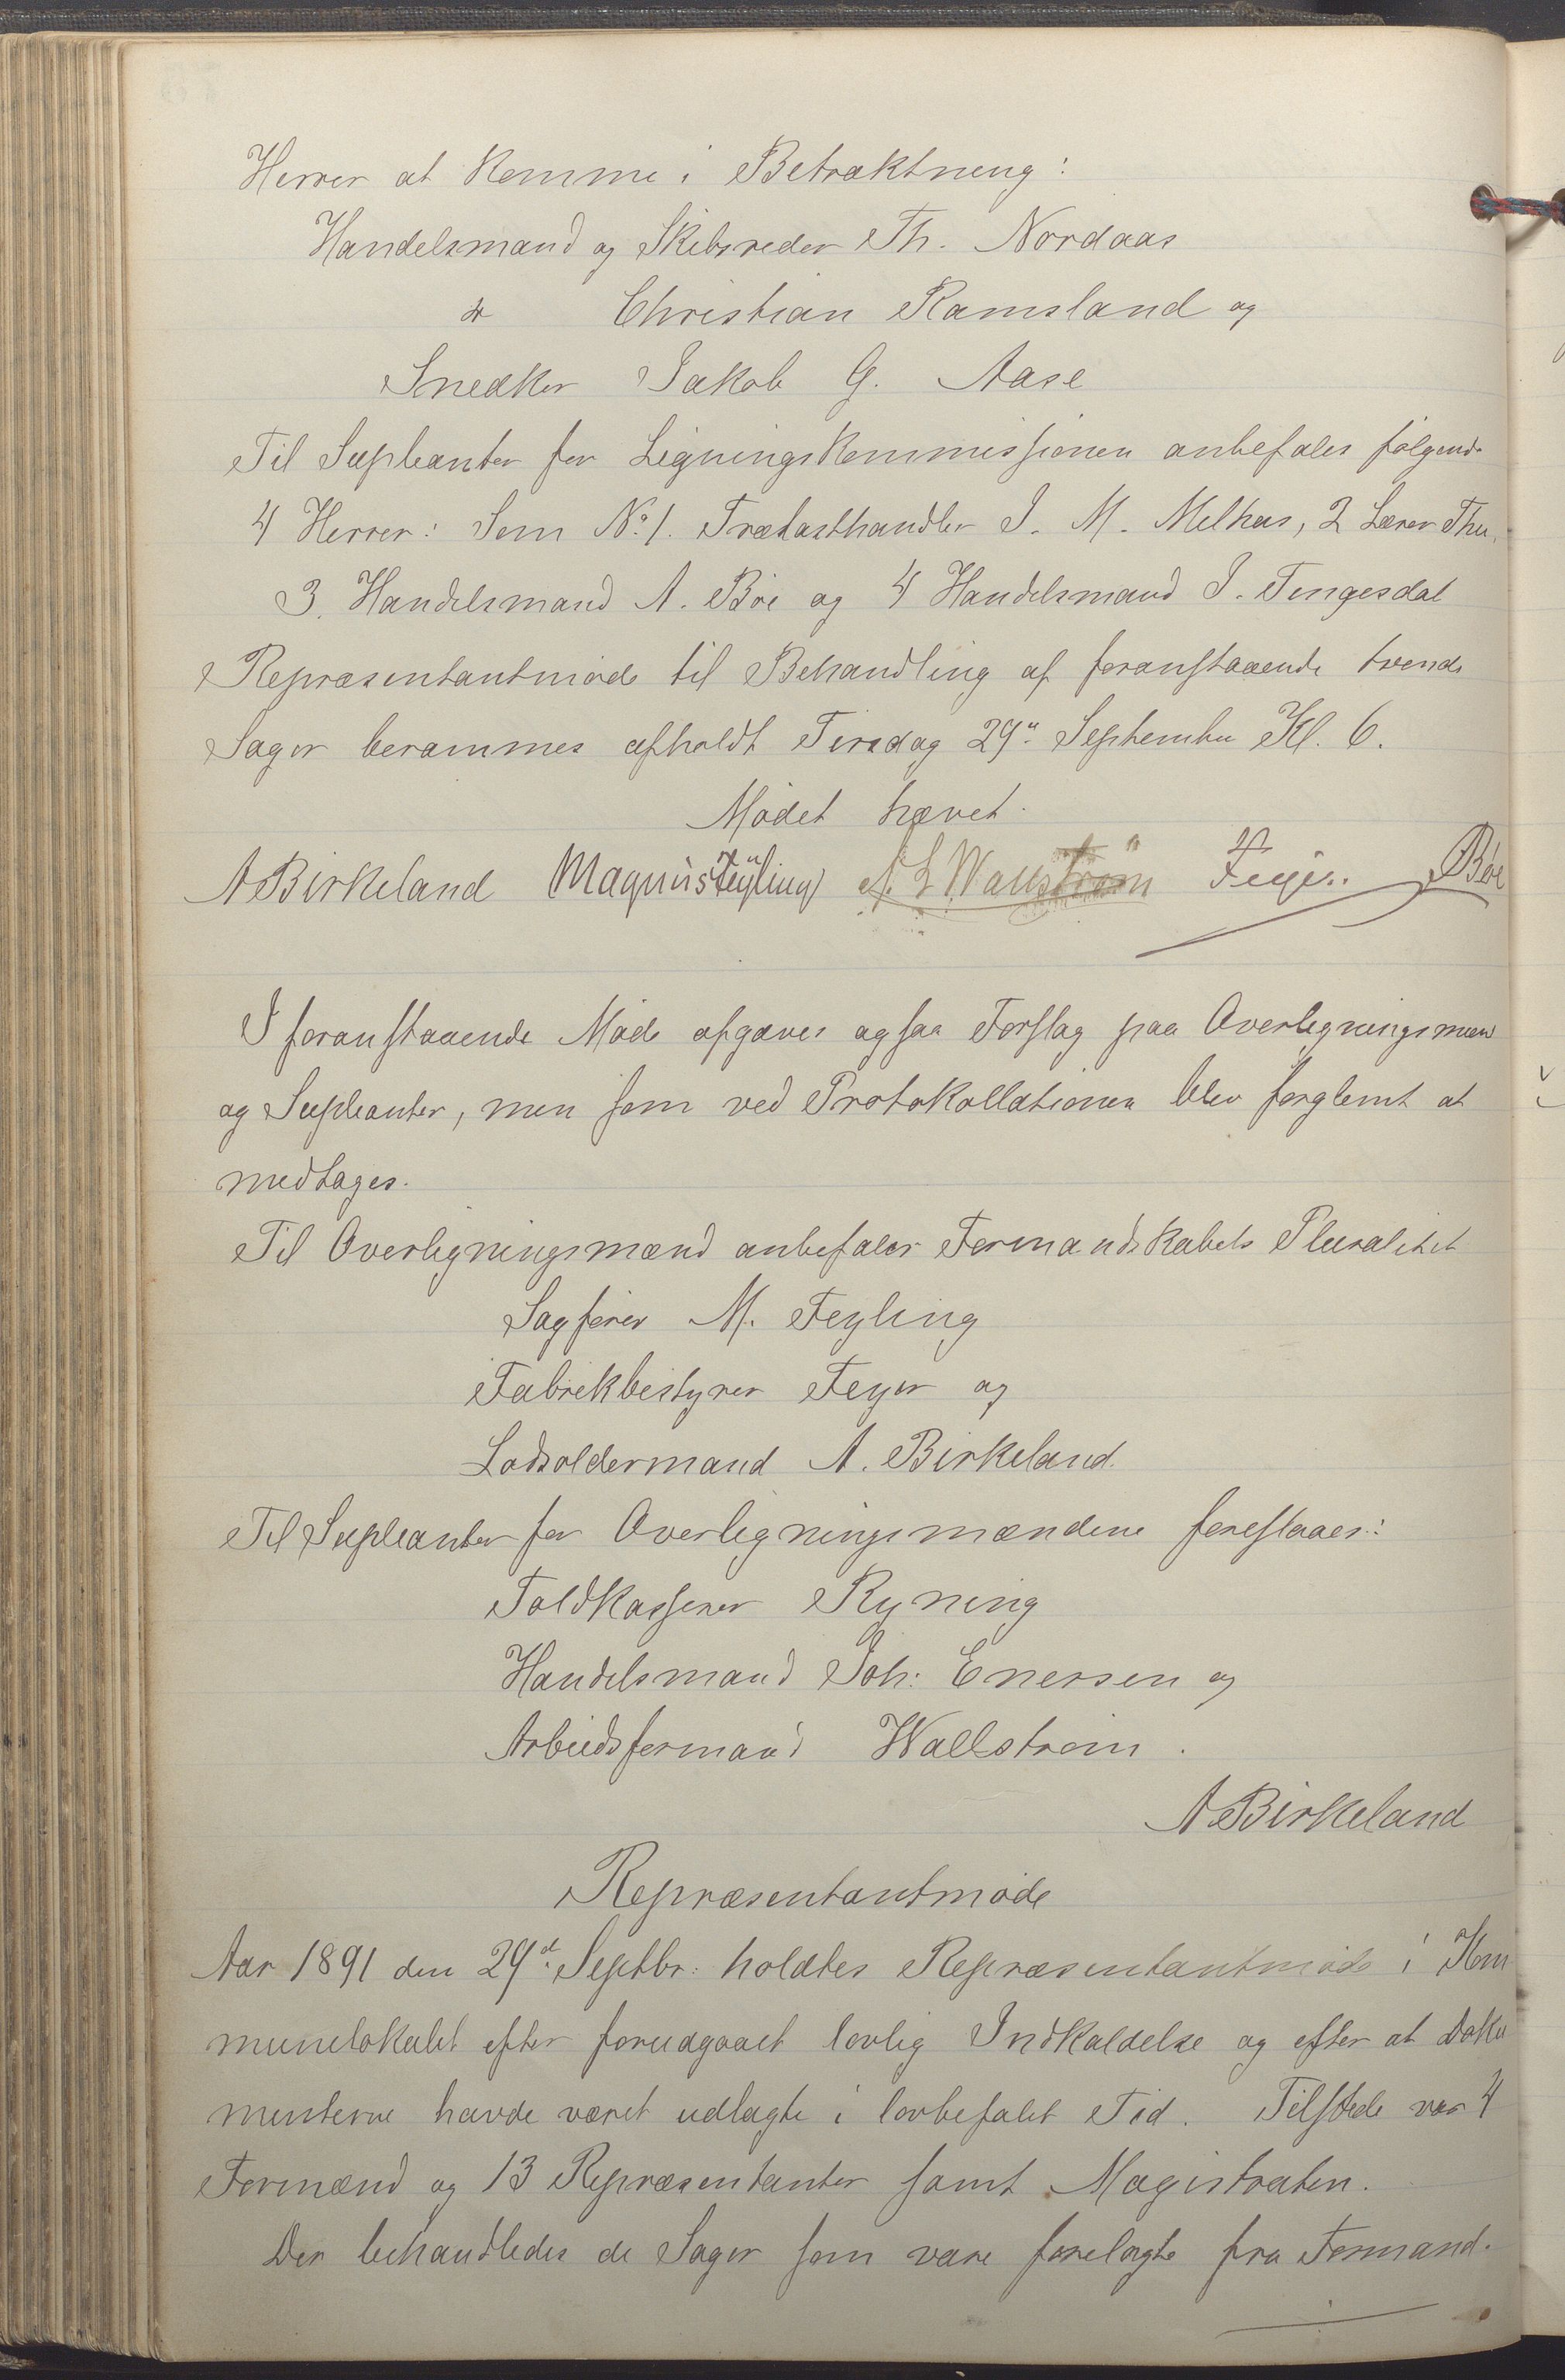 Herrer at komme i Betraktning:
Handelsmand og Skibsreder Th. Nordaas
do Christian Ramsland og
Snedker Jakob G. Aase
Til Supleanter for Ligningskommissionen anbefales følgende
4 Herrer: Som No. 1. Trælasthandler J. M. Melhus, 2 Lærer Thu,
3. Handelsmand A. Böe og 4 Handelsmand J. Tengesdal
Repræsentantmøde til Behandling af foranstaaende tvende
Sager berammes afholdt Tirsdag 29de September Kl. 6.
Mødet hævet.
A Birkeland Magnus Feyling A. L. Wallström Feyer. Böe
I foranstaaende Møde afgaves ogsaa Forslag paa Overligningsmænd
og Supleanter, men som ved Protokollationen blev forglemt at
medtages.
Til Overligningsmænd anbefaler Formandskabets Pluralitet
Sagfører M. Feyling
Fabrikbestyrer Feyer og
Lodsoldermand A. Birkeland.
Til Supleanter for Overligningsmændene foreslaaes:
Toldkasserer Ryning
Handelsmand Joh: Enersen og
Arbeidsformand Wallstrøm.
A Birkeland
Repræsentantmøde
Aar 1891 den 29d. Septbr: holdtes Repræsentantmøde i Kom
munelokalet efter forudgaaet lovlig Indkaldelse og efter at Doku
menterne havde været udlagte i lovbefalet Tid. Tilstede var 4
Formænd og 13 Repræsentanter samt Magistraten.
Der behandledes de Sager som vare forelagte fra Formand-